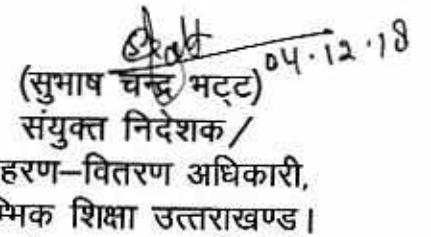 04.12.18
(सुभाष चन्द्र भट्ट)
संयुक्त निदेशक /
हरण–वितरण अधिकारी,
म्भिक शिक्षा उत्तराखण्ड।